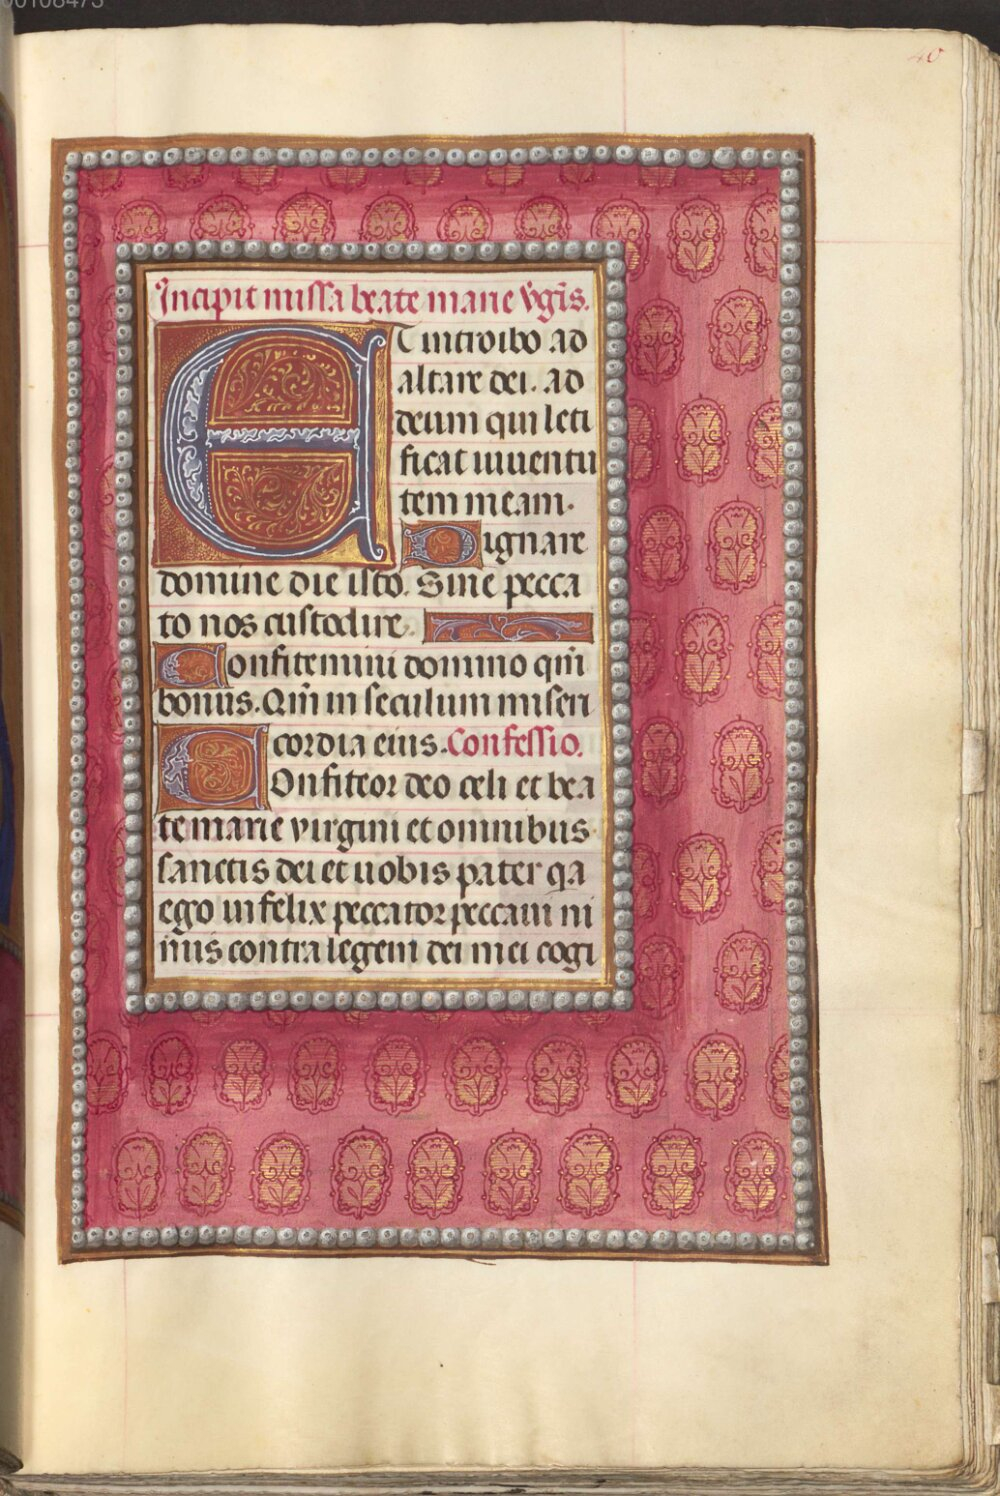 00108473
40
Incipit missa beate marie v̄gīs.
ET introibo ad
altare dei. ad
deum qui leti
ficat iuuentu
tem meam.
Dignare
domine die isto. Sine pecca
to nos custodire.
Confitemini domino qm̄
bonus. Qm̄ in seculum miseri
cordia eius. Confessio.
Confiteor deo celi et bea
te marie virgini et omnibus
sanctis dei et uobis pater qa
ego infelix peccator peccaui ni
mis contra legem dei mei cogi